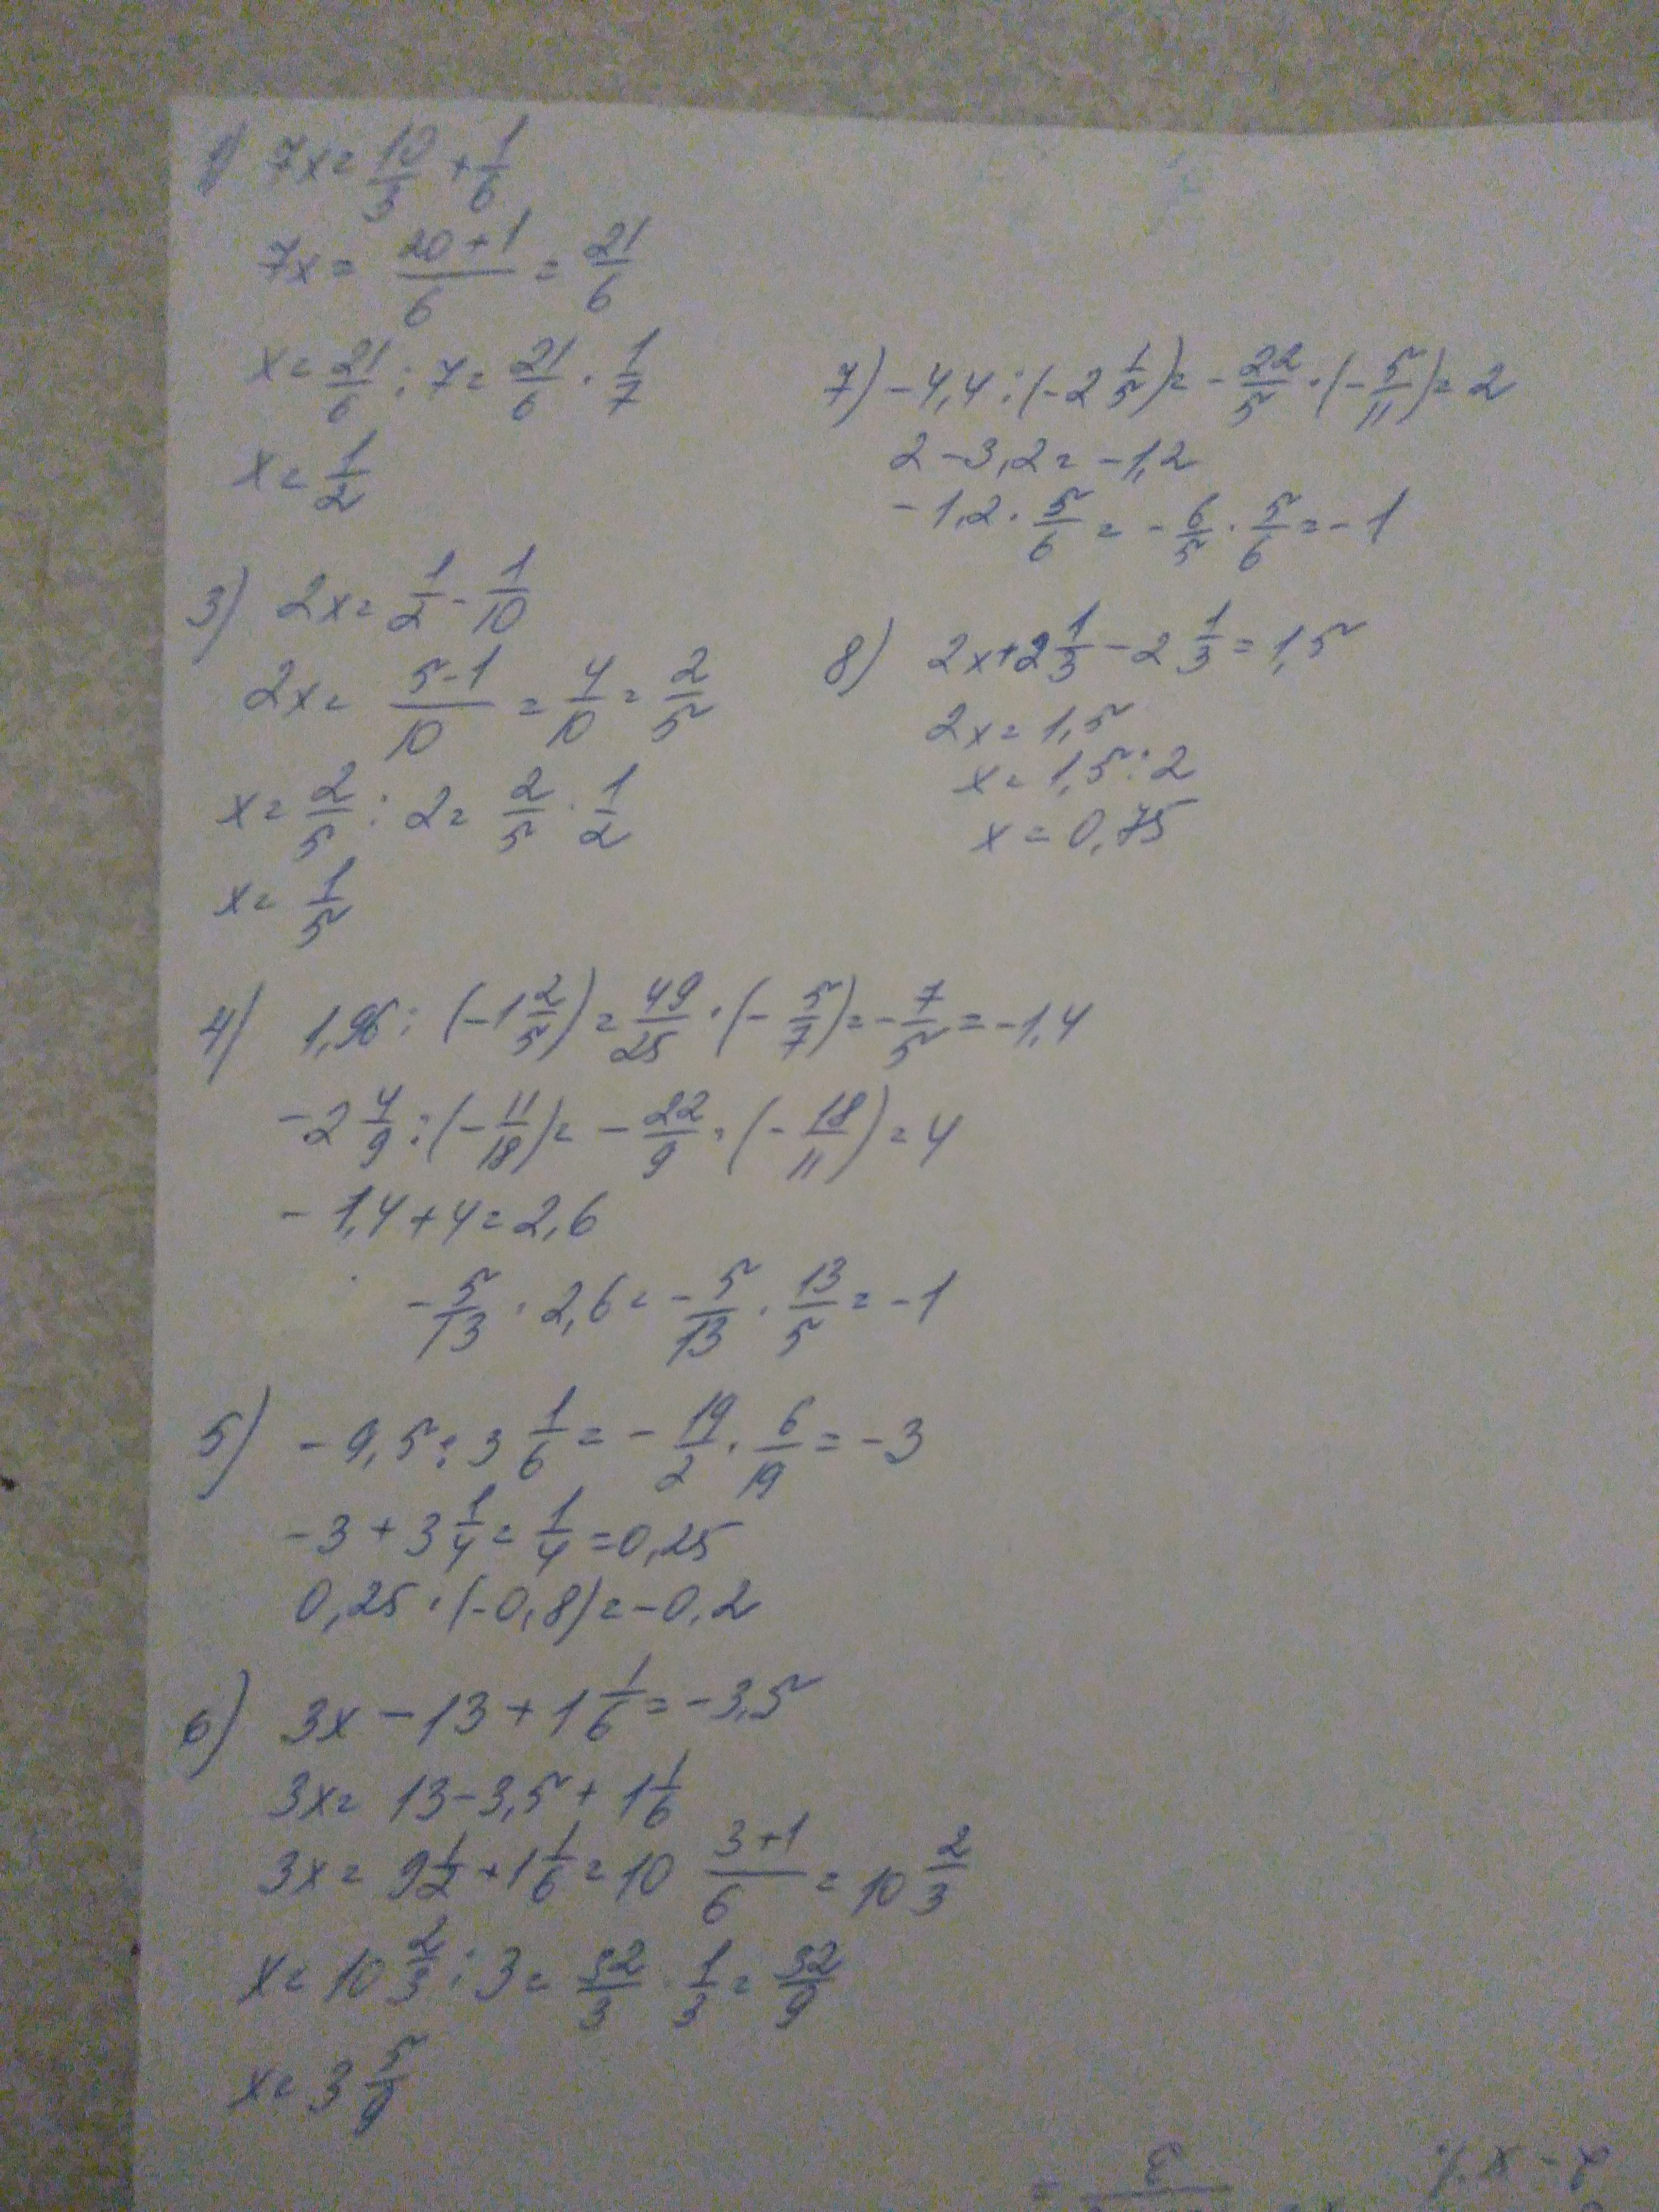 1) 7x = 10/3 + 1/6
7x = (20+1)/6 = 21/6
x = 21/6 : 7 = 21/6 · 1/7
x = 1/2
3) 2x = 1/2 - 1/10
2x = (5-1)/10 = 4/10 = 2/5
x = 2/5 : 2 = 2/5 · 1/2
x = 1/5
4) 1,96 : (-1 2/5) = 49/25 · (-5/7) = -7/5 = -1,4
-2 4/9 : (-11/18) = -22/9 · (-18/11) = 4
-1,4 + 4 = 2,6
-5/13 · 2,6 = -5/13 · 13/5 = -1
5) -9,5 : 3 1/6 = -19/2 · 6/19 = -3
-3 + 3 1/4 = 1/4 = 0,25
0,25 · (-0,8) = -0,2
6) 3x - 13 + 1 1/6 = -3,5
3x = 13 - 3,5 + 1 1/6
3x = 9 1/2 + 1 1/6 = 10 (3+1)/6 = 10 2/3
x = 10 2/3 : 3 = 32/3 · 1/3 = 32/9
x = 3 5/9
7) -4,4 : (-2 1/5) = -22/5 · (-5/11) = 2
2 - 3,2 = -1,2
-1,2 · 5/6 = -6/5 · 5/6 = -1
8) 2x + 2 1/3 - 2 1/3 = 1,5
2x = 1,5
x = 1,5 : 2
x = 0,75